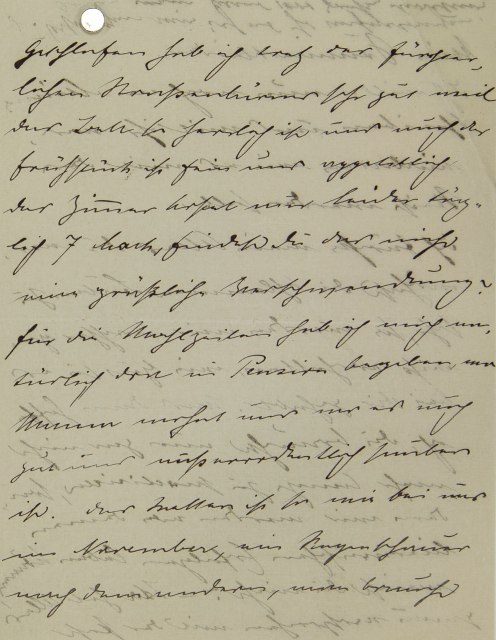 Geschlafen hab ich trotz des fürchter-
lichen Strassenlärms sehr gut weil
das Bett so herrlich ist und auch das
Frühstück ist fein und appetitlich
das Zimmer kostet nur leider täg-
lich 7 Mark, findest du das nicht
eine gräßliche Verschwendung?
für die Mahlzeiten hab ich mich na-
türlich dort in Pension begeben, wo
Mumma wohnt und wo es auch
gut und außerordentlich sauber
ist. das Wetter ist so wie bei uns
im November, ein Regenschauer
nach dem anderen, man braucht